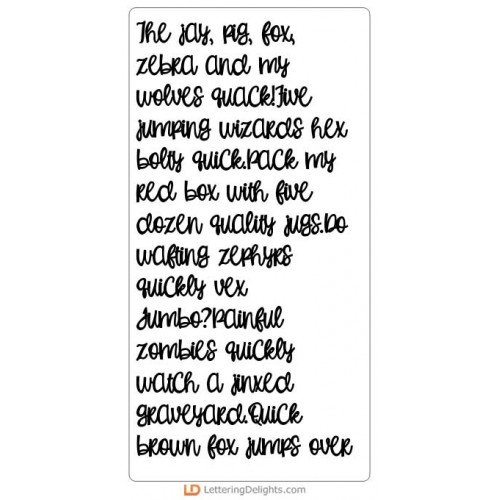 The jay, pig, fox,
zebra and my
wolves quack!Five
jumping wizards hex
bolty quick.Pack my
red box with five
dozen quality jugs.Do
wafting zephyrs
quickly vex
Jumbo?Painful
zombies quickly
watch a jinxed
graveyard.Quick
brown fox jumps over
LD LetteringDelights.com